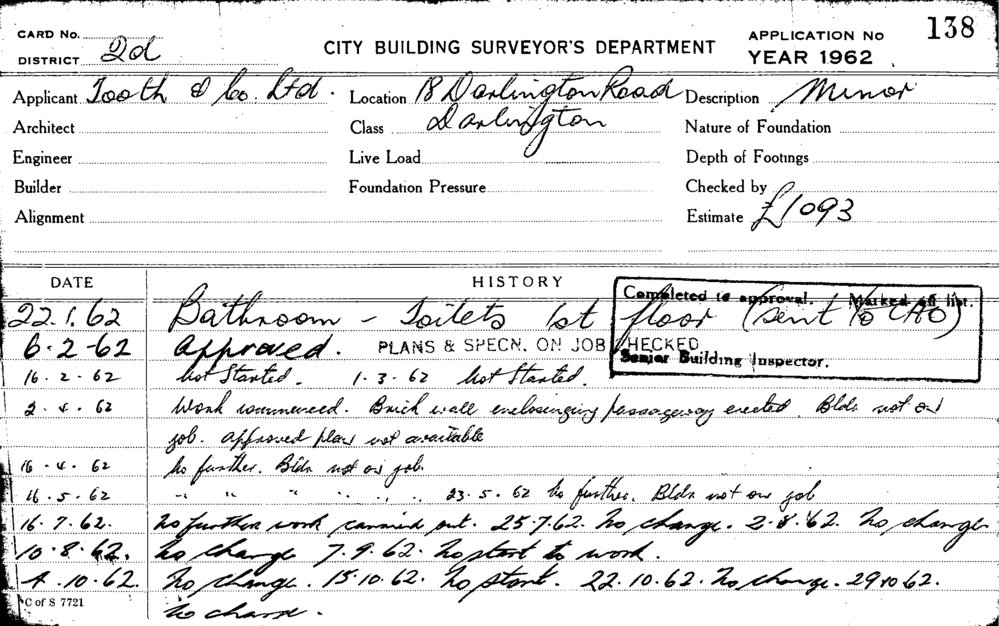 CARD No.
DISTRICT 2d
CITY BUILDING SURVEYOR'S DEPARTMENT
APPLICATION No 138
YEAR 1962
Applicant Tooth & Co. Ltd. Location 18 Darlington Road Description Minor
Architect Class Darlington Nature of Foundation
Engineer Live Load Depth of Footings
Builder Foundation Pressure Checked by
Alignment Estimate £1093
DATE HISTORY
Completed to approval. Marked off list.
22.1.62 Bathroom - Toilets 1st floor (sent to CHO)
6-2-62 Approved. PLANS & SPECN. ON JOB CHECKED
Senior Building Inspector.
16.2.62 Not Started. 1.3.62 Not Started.
2.4.62 Work commenced. Brick wall enclosinging passageway erected. Bldr not on
job. approved plan not available
16.4.62 No further. Bldr not on job.
16.5.62 " " " " " " 23.5.62 No further. Bldr not on job
16.7.62. No further work carried out. 25.7.62. No change. 2.8.62. No change.
10.8.62. No change 7.9.62. No start to work.
4.10.62. No change. 15.10.62. No start. 22.10.62. No change. 29.10.62.
C of S 7721
No change.